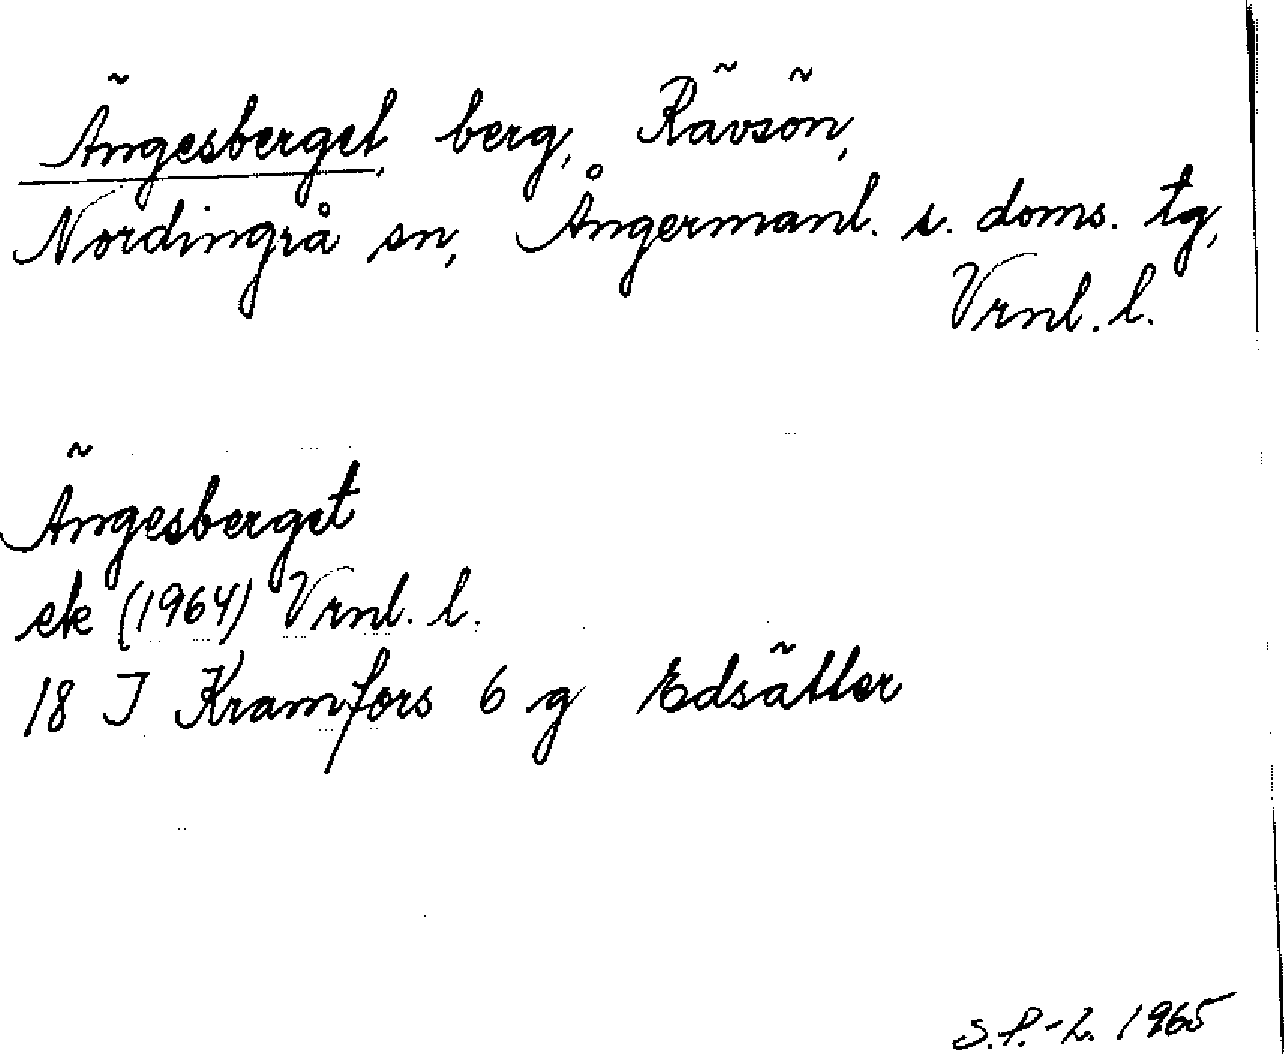 Ängesberget, berg, Rävsön,
Nordingrå sn, Ångermanl. s. doms. tg,
Vrnl. l.
Ängesberget
ek (1964) Vrnl. l.
18 I Kramfors 6 g Edsätter
S.P.-L. 1965